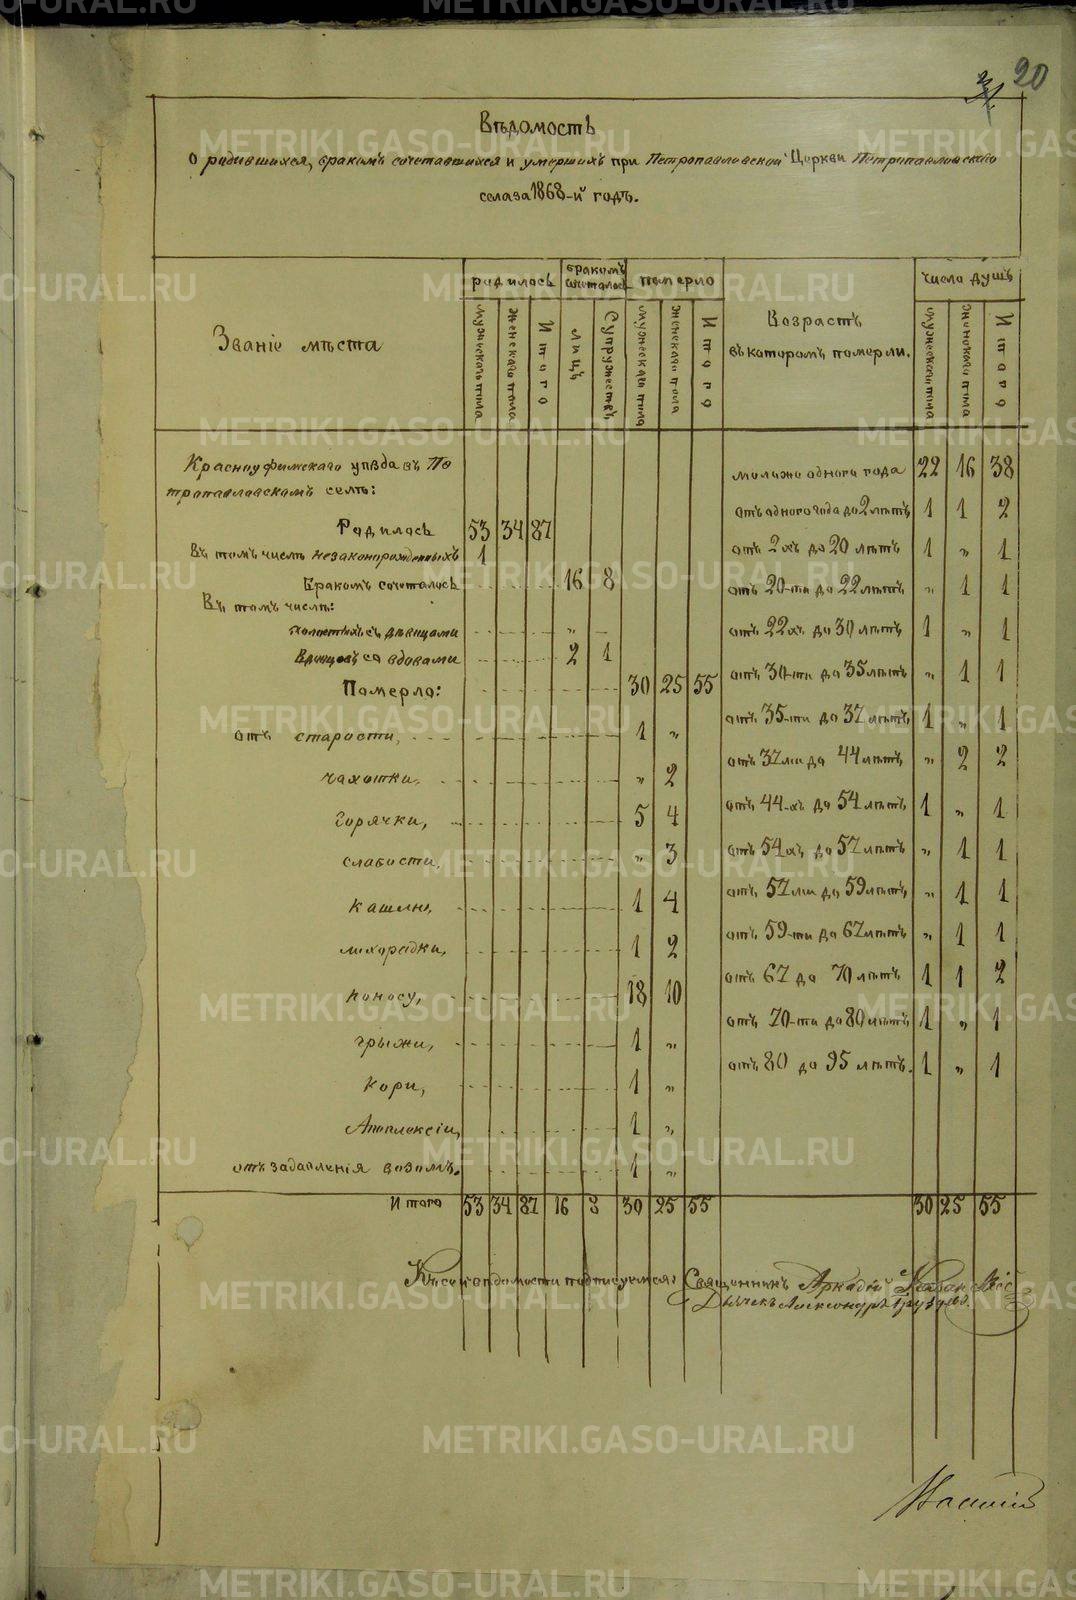 20
Вѣдомость
о родившихся, бракомъ сочетавшихся и умершихъ при Петропавловской Церкви Петропавловскаго
села за 1868-й годъ.
Званіе мѣста
родилось
бракомъ сочеталось
померло
Возрастъ
въ которомъ померли.
число душъ
мужескаго пола
женскаго пола
Итого
лицъ
Супружествъ
мужескаго пола
женскаго пола
Итого
мужескаго пола
женскаго пола
Итого
Красноуфимскаго уѣзда въ Пе
тропавловскомъ селѣ:
Родилось 53 34 87
Въ томъ числѣ незаконорожденныхъ 1
Бракомъ сочеталось 16 8
Въ томъ числѣ:
холостыхъ съ дѣвицами „ –
Вдовцовъ со вдовами 2 1
Померло: 30 25 55
отъ старости, 1 „
чахотки, „ 2
горячки, 5 4
слабости, „ 3
кашлю, 1 4
лихорадки, 1 2
поносу, 18 10
грыжи, 1 „
кори, 1 „
Апоплексіи, 1 „
отъ задавленія возомъ. 1 „
моложе одного года 22 16 38
отъ одного года до 2 лѣтъ 1 1 2
отъ 2хъ до 20 лѣтъ 1 „ 1
отъ 20-ти до 22 лѣтъ „ 1 1
отъ 22хъ до 30 лѣтъ 1 „ 1
отъ 30-ти до 35 лѣтъ „ 1 1
отъ 35-ти до 37 лѣтъ 1 „ 1
отъ 37ми до 44 лѣтъ „ 2 2
отъ 44-хъ до 54 лѣтъ 1 „ 1
отъ 54хъ до 57 лѣтъ „ 1 1
отъ 57ми до 59 лѣтъ „ 1 1
отъ 59-ти до 67 лѣтъ „ 1 1
отъ 67 до 70 лѣтъ 1 1 2
отъ 70-ти до 80 лѣтъ 1 „ 1
отъ 80 до 95 лѣтъ. 1 „ 1
Итого 53 34 87 16 8 30 25 55 30 25 55
Къ сей вѣдомости подписуемся: Священникъ Аркадій
Дьячекъ Александръ
METRIKI.GASO-URAL.RU